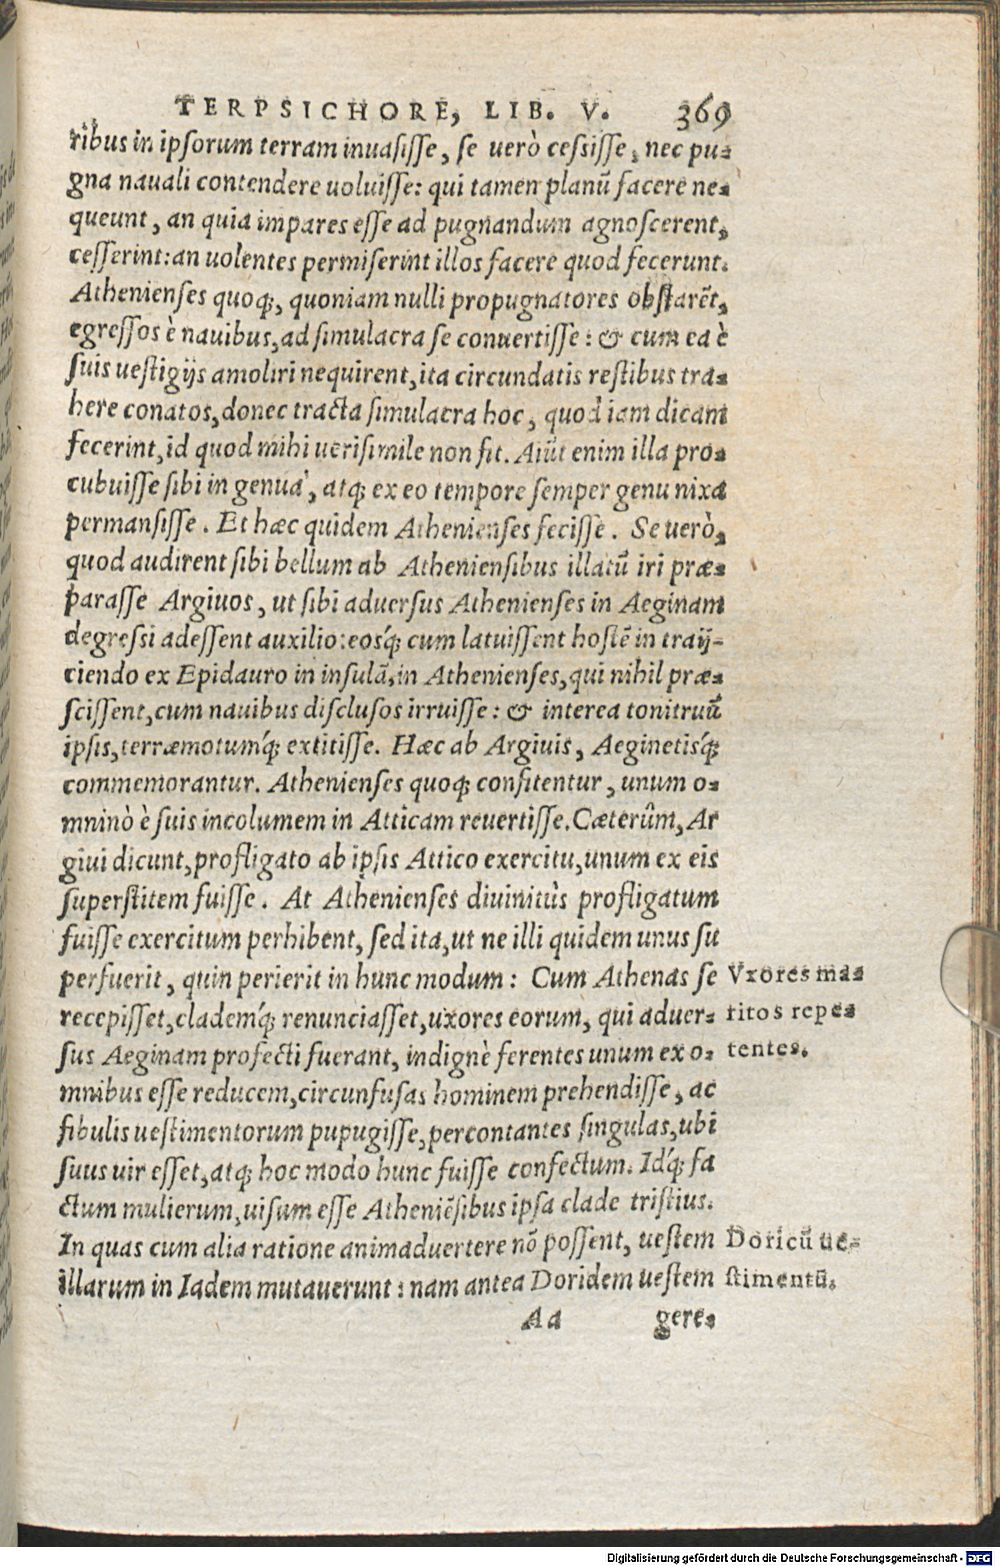 TERPSICHORE, LIB. V. 369
ribus in ipsorum terram inuasisse, se uerò cessisse, nec pu-
gna nauali contendere uoluisse: qui tamen planū facere ne-
queunt, an quia impares esse ad pugnandum agnoscerent,
cesserint: an uolentes permiserint illos facere quod fecerunt.
Athenienses quoq;, quoniam nulli propugnatores obstarēt,
egressos è nauibus, ad simulacra se conuertisse: & cum ea è
suis uestigijs amoliri nequirent, ita circundatis restibus tra-
here conatos, donec tracta simulacra hoc, quod iam dicam
fecerint, id quod mihi uerisimile non fit. Aiūt enim illa pro-
cubuisse sibi in genua, atq; ex eo tempore semper genu nixa
permansisse. Et hæc quidem Athenienses fecisse. Se uerò,
quod audirent sibi bellum ab Atheniensibus illatū iri præ-
parasse Argiuos, ut sibi aduersus Athenienses in Aeginam
degressi adessent auxilio: eosq́; cum latuissent hostē in traij-
ciendo ex Epidauro in insulā, in Athenienses, qui nihil præ-
scissent, cum nauibus disclusos irruisse: & interea tonitruū
ipsis, terræmotumq́; extitisse. Hæc ab Argiuis, Aeginetisq́;
commemorantur. Athenienses quoq; confitentur, unum o-
mninò è suis incolumem in Atticam reuertisse. Cæterûm, Ar
giui dicunt, profligato ab ipsis Attico exercitu, unum ex eis
superstitem fuisse. At Athenienses diuinitùs profligatum
fuisse exercitum perhibent, sed ita, ut ne illi quidem unus su
perfuerit, quin perierit in hunc modum: Cum Athenas se
recepisset, clademq́; renunciasset, uxores eorum, qui aduer-
sus Aeginam profecti fuerant, indignè ferentes unum ex o-
mnibus esse reducem, circunfusas hominem prehendisse, ac
fibulis uestimentorum pupugisse, percontantes singulas, ubi
suus uir esset, atq; hoc modo hunc fuisse confectum. Idq́; fa
ctum mulierum, uisum esse Atheniēsibus ipsa clade tristius.
In quas cum alia ratione animaduertere nō possent, uestem
illarum in Iadem mutauerunt: nam antea Doridem uestem
Aa gere-
Vxores ma-
ritos repe-
tentes.
Doricū ue-
stimentū.
Digitalisierung gefördert durch die Deutsche Forschungsgemeinschaft - DFG